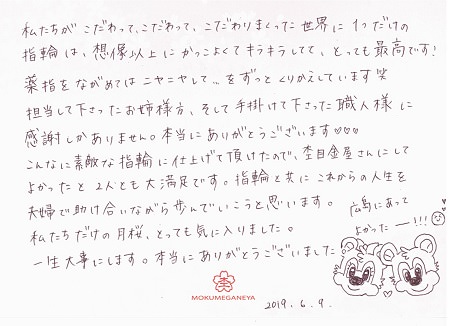 私たちが こだわって、こだわって、こだわりまくった世界に1つだけの
指輪は、想像以上にかっこよくてキラキラしてて、とっても最高です!
薬指をながめてはニヤニヤして…をずっとくりかえしています笑
担当して下さったお姉様方、そして手掛けて下さった職人様に
感謝しかありません。本当にありがとうございます♡♡♡
こんなに素敵な指輪に仕上げて頂けたので、杢目金屋さんにして
よかったと2人とも大満足です。指輪と共にこれからの人生を
夫婦で助け合いながら歩んでいこうと思います。
私たちだけの月桜、とっても気に入りました。
一生大事にします。本当にありがとうございました
広島にあって
よかったー!!!
MOKUMEGANEYA
2019.6.9.